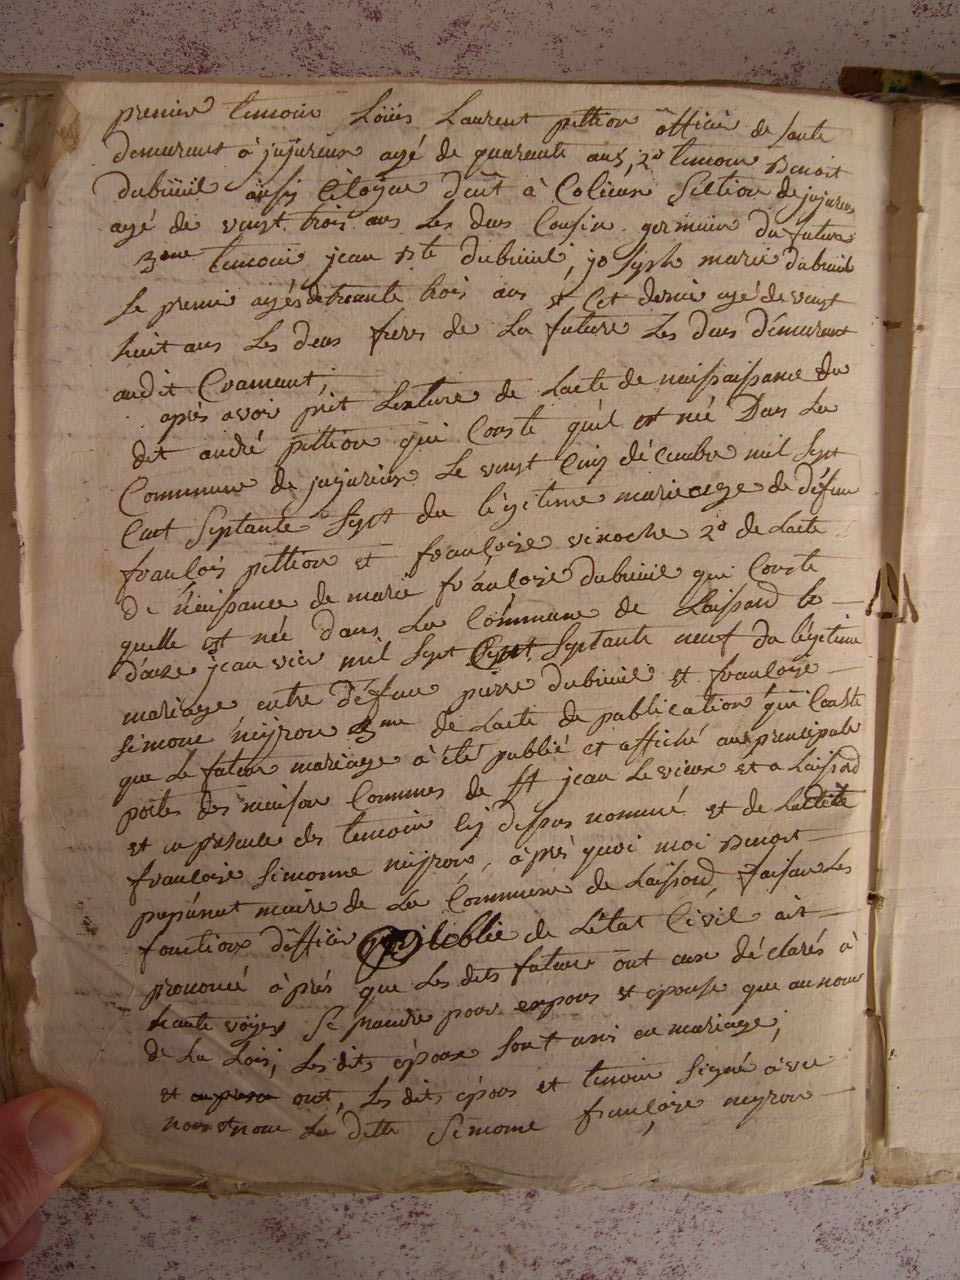 premier temoin Loüis Laurent pittion officié de sante
demurant à jujurieux agé de quarante ans, 2d temoin Benoit
dubüiel aussi Citoyen dud à Colieux Section de jujurieux
agé de vingt trois ans Les deux Cousin germain du future
3eme temoin jean Bte dubüiel, joseph marie dubüiel
Le premié agés de trente trois ans et Cet dernié agé de vingt
huit ans Les deux freres de La future Les deux démurant
audit Cramant;
après avoir prit Lecture de Lacte de naissaissance du
dit andré pittion qui Conste qu'il est né Dans La
Commune de jujurieux Le vingt Cinq décembre mil Sept
Cent Septante Sept du légitime mariage de défun
françois pittion et françoise vinoche 2d de Lacte
De naissance de marie françoise dubüiel qui Conste
quelle est née dans La Commune de Laissard le
douze jeanvier mil Sept Cent Septante neuf du légitime
mariage entre défun pierre dubüiel et françoise
simone neyron 3eme de Lacte de publication qui Conste
que Le futeur mariage à été publié et affiché aux principale
portes des maison Commes de St jean Le vieux et a Laissard
et en présence des temoin cy dessus nommé et de Ladite
françoise simonne neyron, après quoi moi Benoit
maire de La Commune de Laissard, faisan Les
fonction dofficié publie de Létat Civil ait
prononcé après que Les dits future ont eux déclarés à
haute voye Se prandre pour expous et épouse que au nom
de La Loix, Les dits époux sont unis en mariage;
et ont, Les dits épous et temoin signé avec
nous La ditte Simone françoise neyron